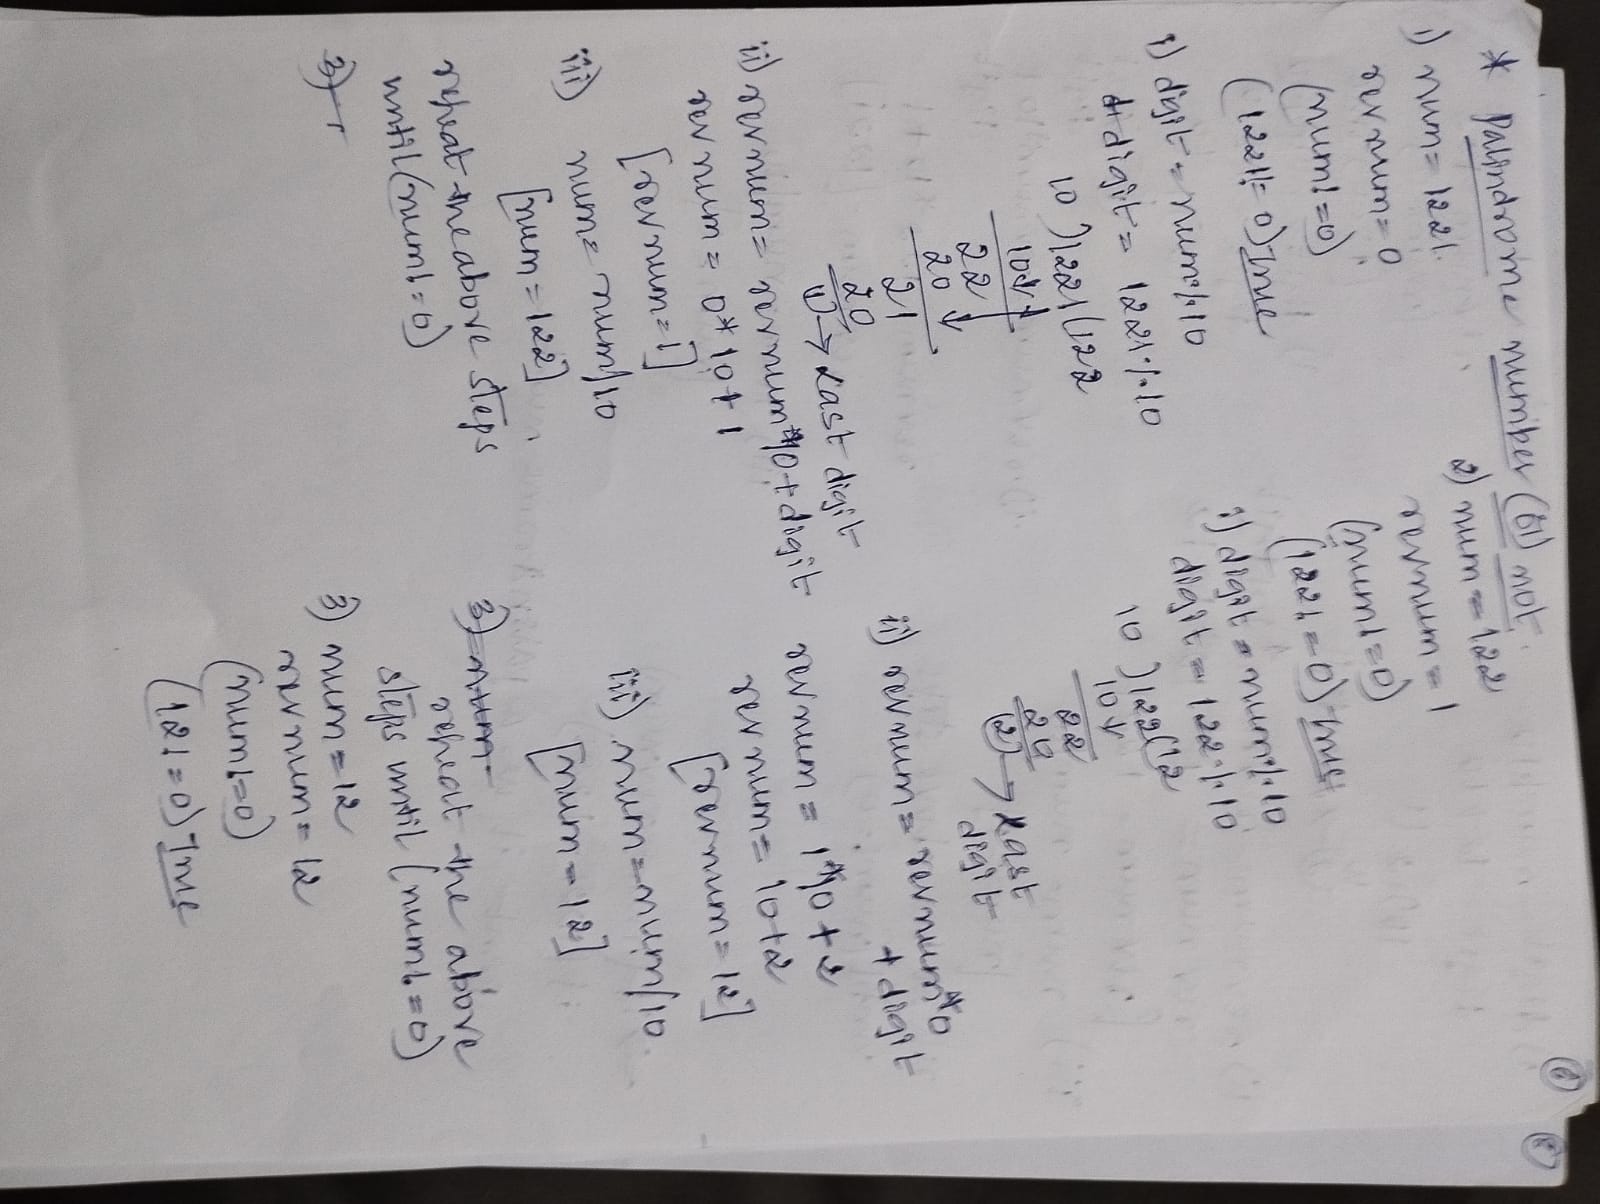 6
* Palindrome number (or) not.
1) num = 1221.
revnum = 0
(num!=0)
(1221!=0) True
i) digit = num%10
digit = 1221%10
10)1221(122
10
22
20
21
20
1 → Last digit
ii) revnum = revnum*10+digit
revnum = 0*10+1
[revnum=1]
iii) num = num/10
[num=122]
repeat the above steps
until (num!=0)
3)
2) num = 122
revnum = 1
(num!=0)
(122!=0) True
i) digit = num%10
digit = 122%10
10)122(12
10
22
20
2 → Last
digit
ii) revnum = revnum*0
+ digit
revnum = 1*10+2
revnum = 10+2
[revnum=12]
iii) num=num/10.
[num=12]
3) num
repeat the above
steps until (num!=0)
3) num=12
revnum=12
(num!=0)
(12!=0) True